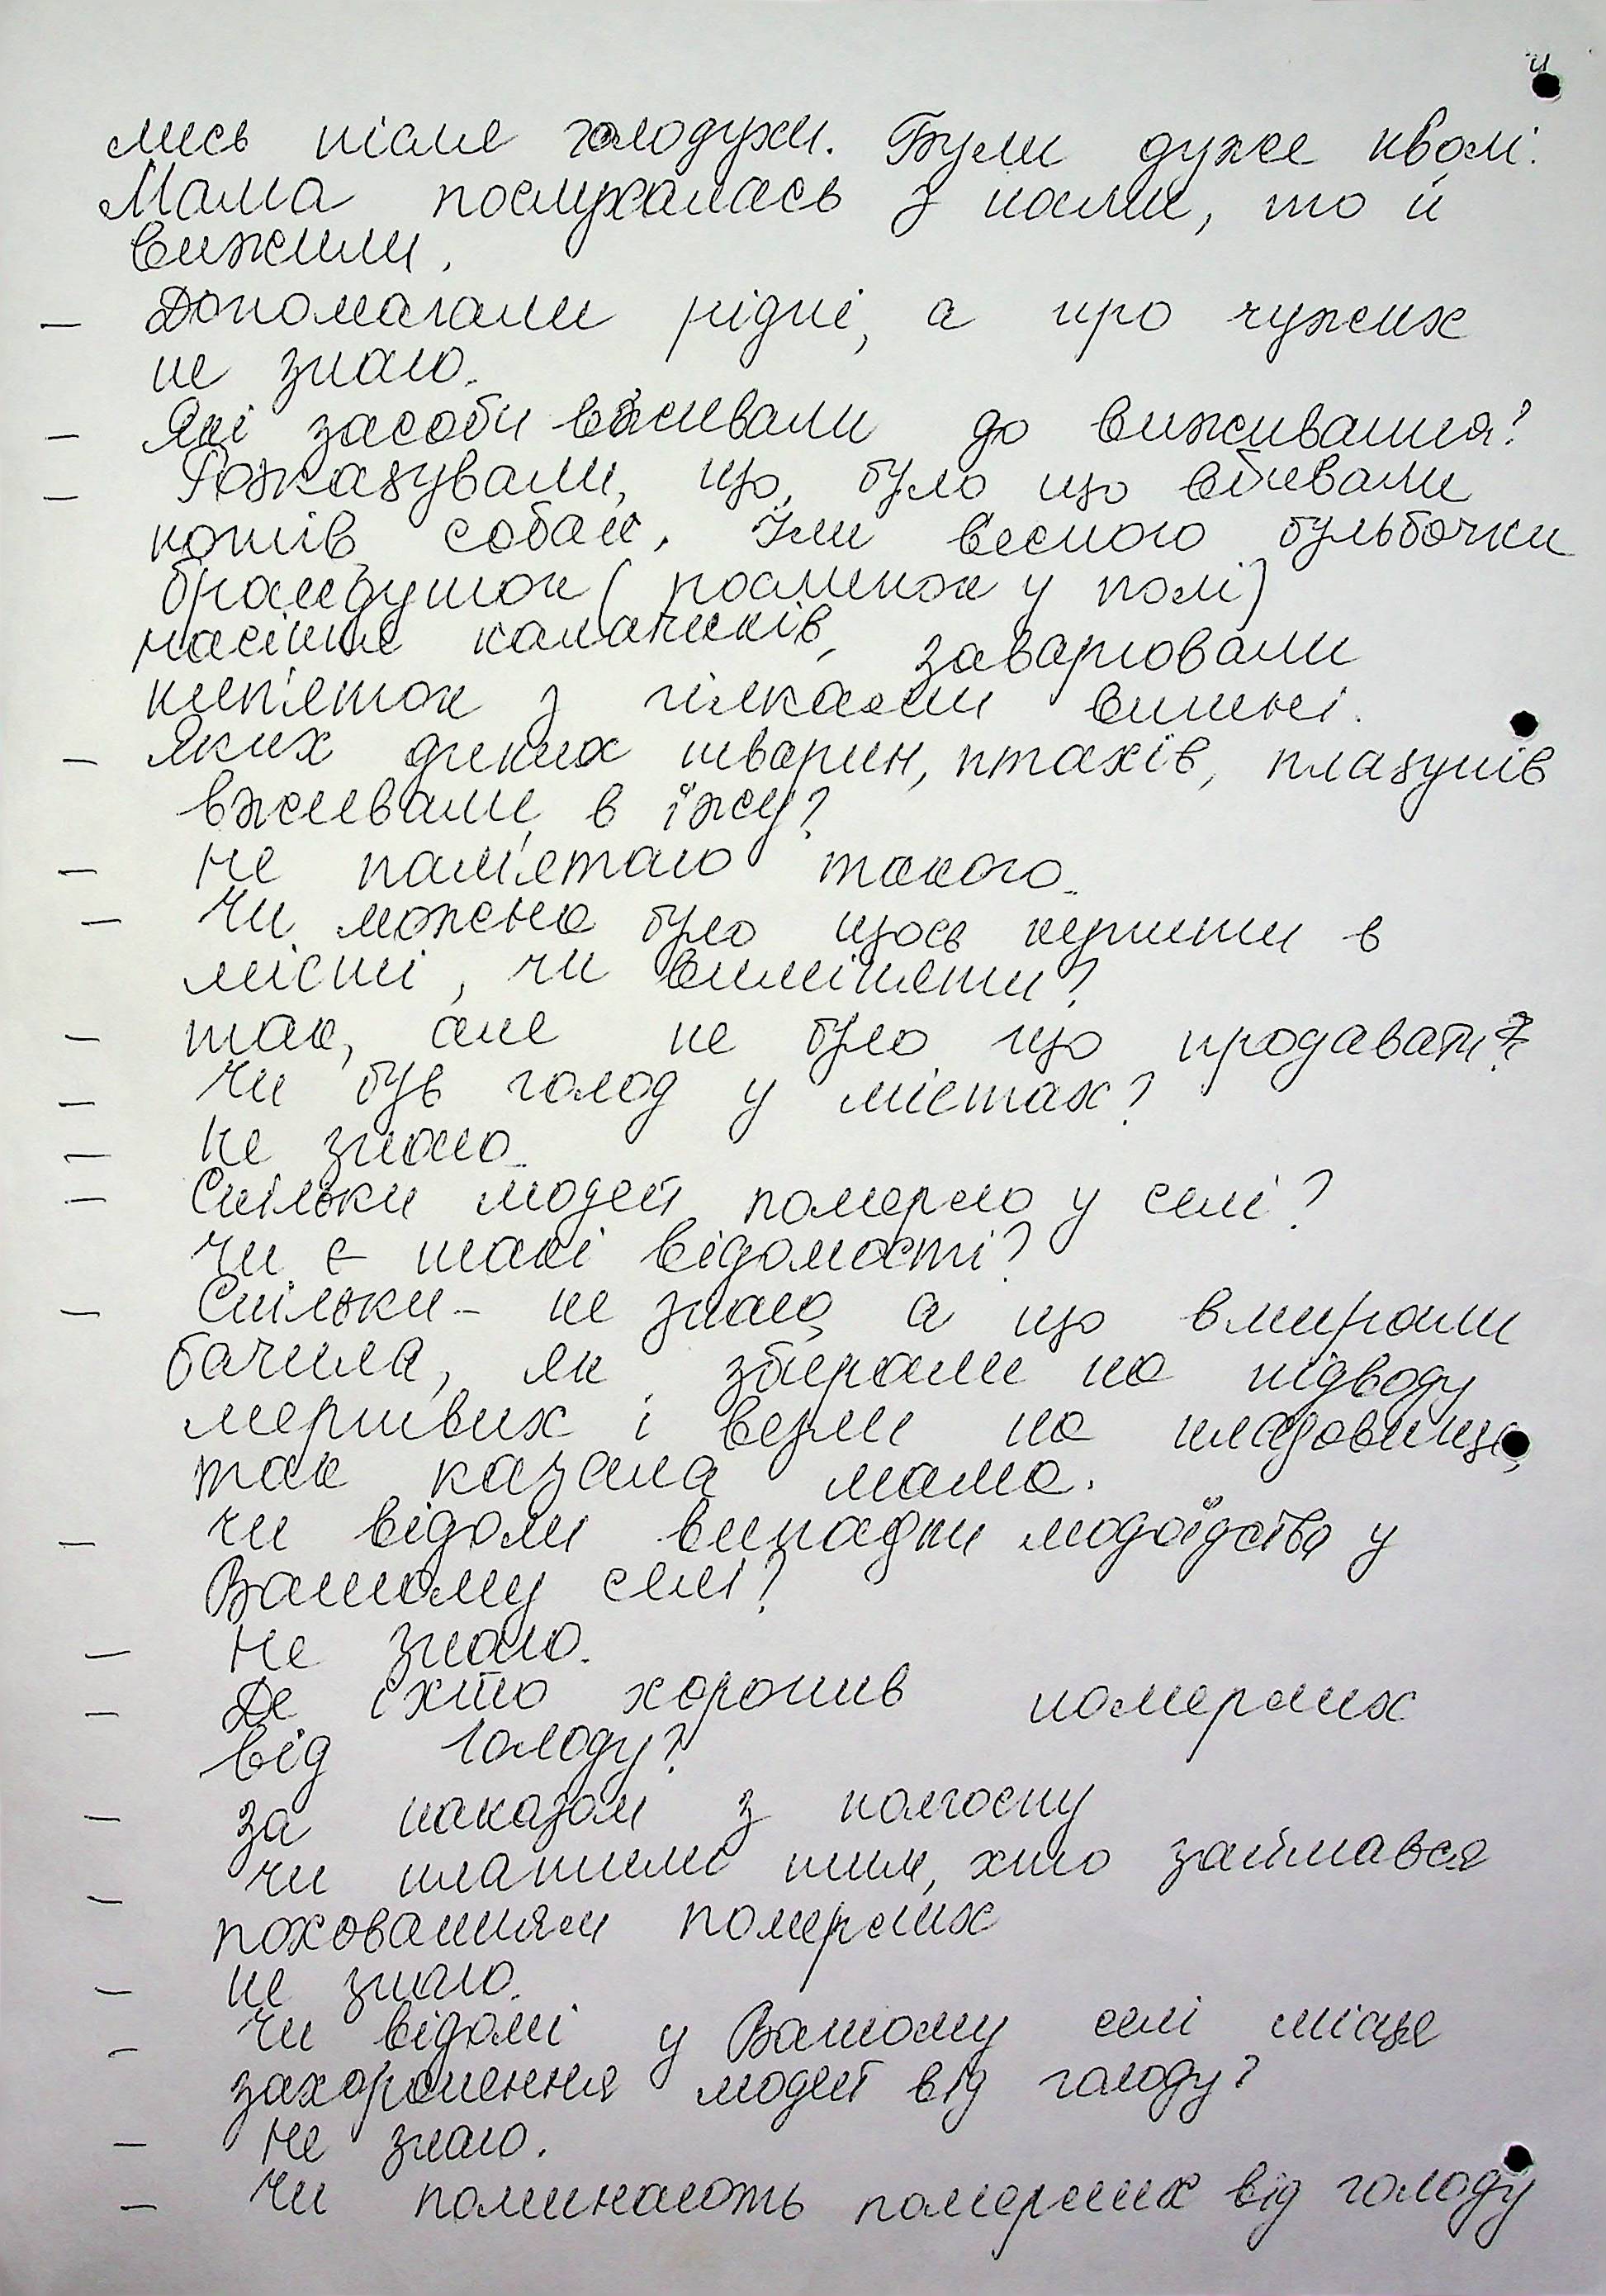 лись після голодухи. Були дуже кволі.
Мама послухалась з нами, то й
вижили.
– Допомагали рідні, а про чужих
не знаю.
– Які засоби вживали до виживання?
– Розказували, що, було що вбивали
котів, собак. Їли весною бульбочки
брандушок (рослинок у полі)
насіння калачиків, заварювали
кип'яток з гілками вишні.
– Яких диких тварин, птахів, плазунів
вживали в їжу?
– Не пам'ятаю такого.
– Чи можна було щось купити в
місті, чи виміняти?
– так, але не було що продавати?
– Чи був голод у містах?
– Не знаю.
– Скільки людей померло у селі?
Чи є такі відомості?
– Скільки – не знаю, а що вмирали
бачила, як збирали на підводу
мертвих і везли на кладовище,
так казала мама.
– Чи відомі випадки людоїдства у
Вашому селі?
– Не знаю.
– Де і хто хоронив померлих
від голоду?
– За наказом з колгоспу
– Чи платили тим, хто займався
похованням померлих
– не знаю.
– Чи відомі у Вашому селі місця
захоронення людей від голоду?
– Не знаю.
– Чи поминають померлих від голоду